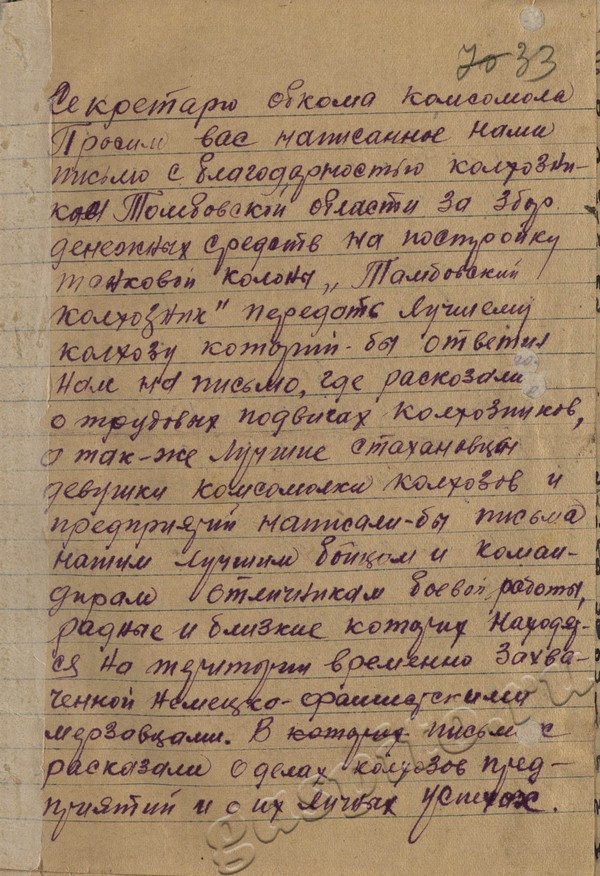 70 33
Секретарю обкома комсомола
Просим вас написанное нами
письмо с благодарностью колхозни-
кам Томбовской области за збор
денежных средств на постройку
танковой колоны „Тамбовский
колхозник" передать лучшему
колхозу который-бы ответил
нам на письмо, где расказали
о трудовых подвигах колхозников,
а так-же лучшие стахановцы
девушки комсомолки колхозов и
предприятий написали-бы письма
нашим лучшим бойцам и коман-
дирам отличникам боевой работы,
радные и близкие которых находят-
ся на територии временно захва-
ченной немецко-фашистскими
мерзавцами. В которых письмо с
расказали о делах колхозов пред-
приятий и о их личных успехах.